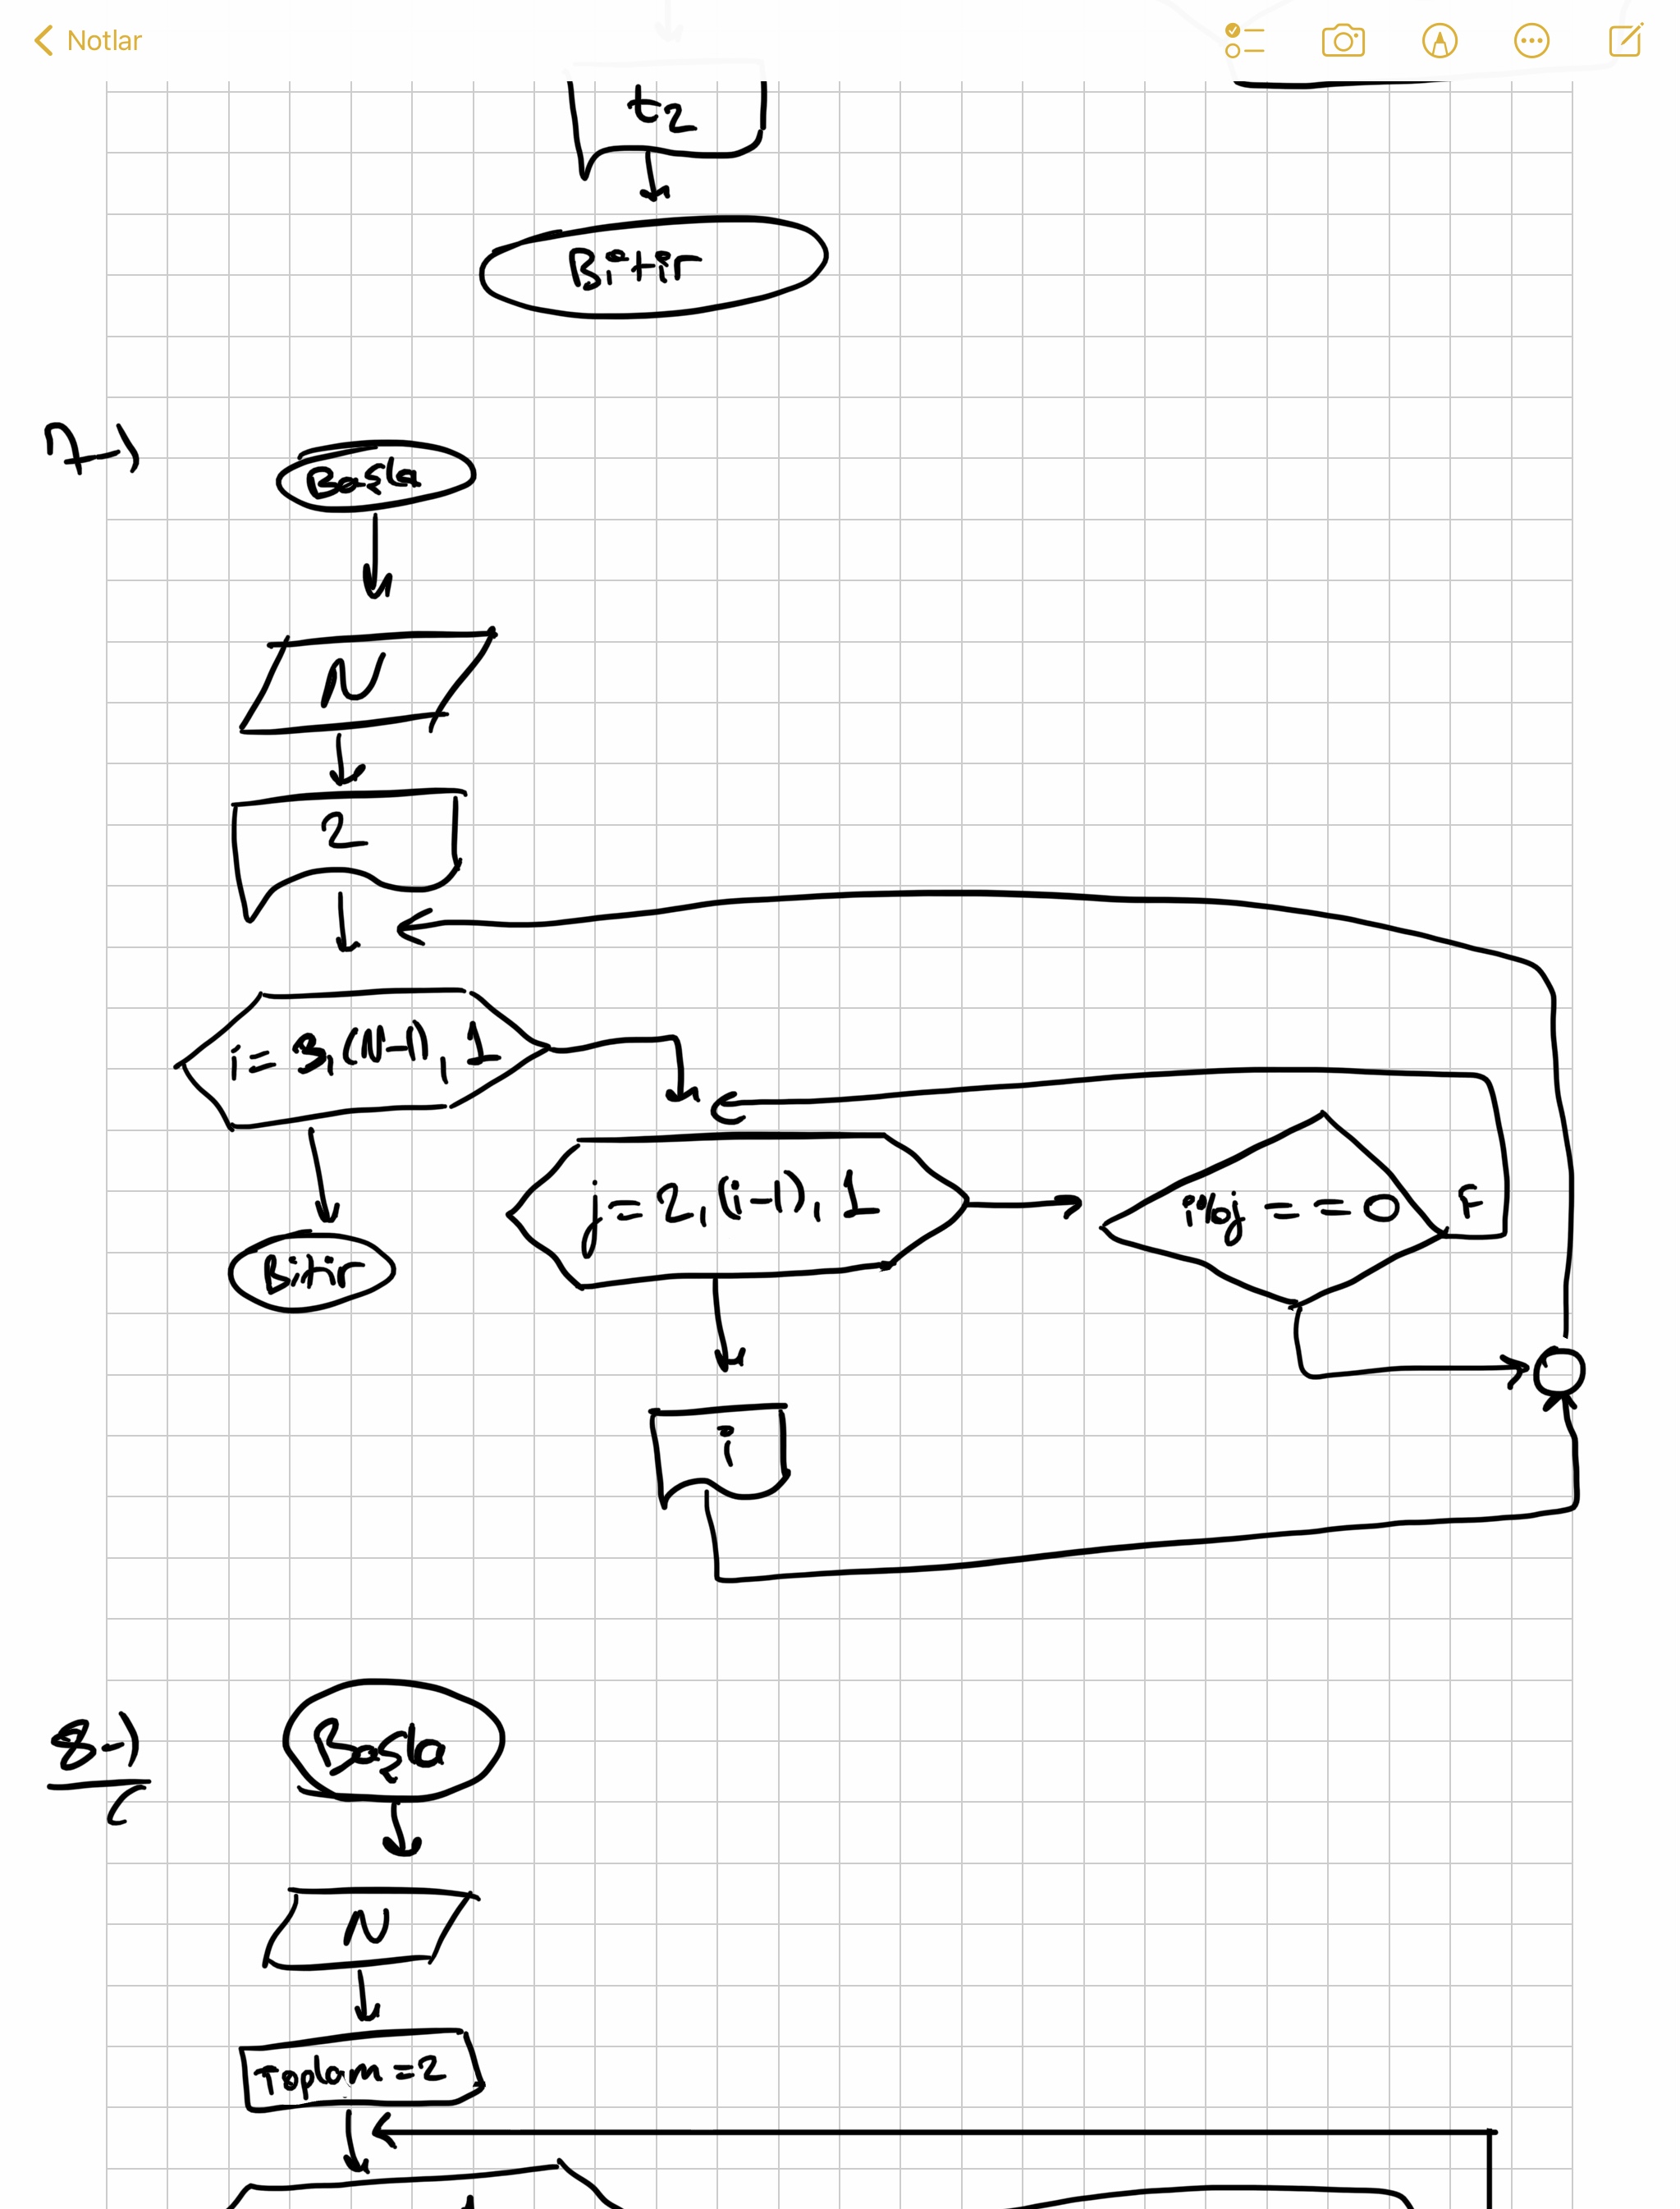 Notlar
t2
Bitir
7-)
Başla
N
2
i= 3,(N-1), 1
j=2,(i-1), 1
i%j == 0
F
Bitir
i
8-)
Başla
N
Toplam=2